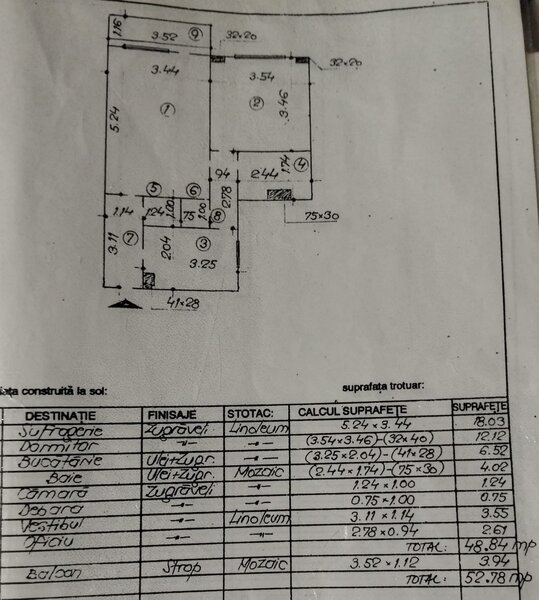 1.16
3.52
9
32×20
3.44
3.54
32×20
1
2
3.46
5.24
1.74
4
94
2.44
5
6
2.78
1.14
1.24
1.00
75
1.00
8
75×30
3.11
7
2.04
3
3.25
41×28
ața construită la sol:
suprafața trotuar:
DESTINAȚIE FINISAJE STOTAC: CALCUL SUPRAFEȚE SUPRAFEȚE
Sufragerie Zugrăveli Linoleum 5.24×3.44 18.03
Dormitor —"— —"— (3.54×3.46)-(32×40) 12.12
Bucătărie Ulei+Zupr. —"— (3.25×2.04)-(41×28) 6.52
Baie Ulei+Zupr. Mozaic (2.44×1.74)-(75×30) 4.02
Cămară Zugrăveli —"— 1.24×1.00 1.24
Debara —"— —"— 0.75×1.00 0.75
Vestibul —"— Linoleum 3.11×1.14 3.55
Oficiu —"— —"— 2.78×0.94 2.61
TOTAL: 48.84 mp
Balcon Strop Mozaic 3.52×1.12 3.94
TOTAL: 52.78 mp